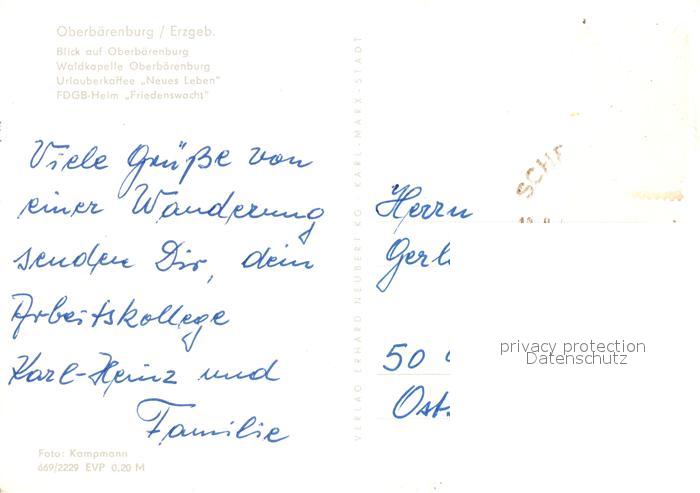 Oberbärenburg / Erzgeb.
Blick auf Oberbärenburg
Waldkapelle Oberbärenburg
Urlauberkaffee „Neues Leben"
FDGB-Heim „Friedenswacht"
Viele Grüße von
einer Wanderung
senden Dir, dein
Arbeitskollege
Karl-Heinz und
Familie
Foto: Kampmann
669/2229 EVP 0,20 M
VERLAG ERHARD NEUBERT KG · KARL-MARX-STADT
SCHF
Herrn
Gerh
50
Ost.
privacy protection
Datenschutz